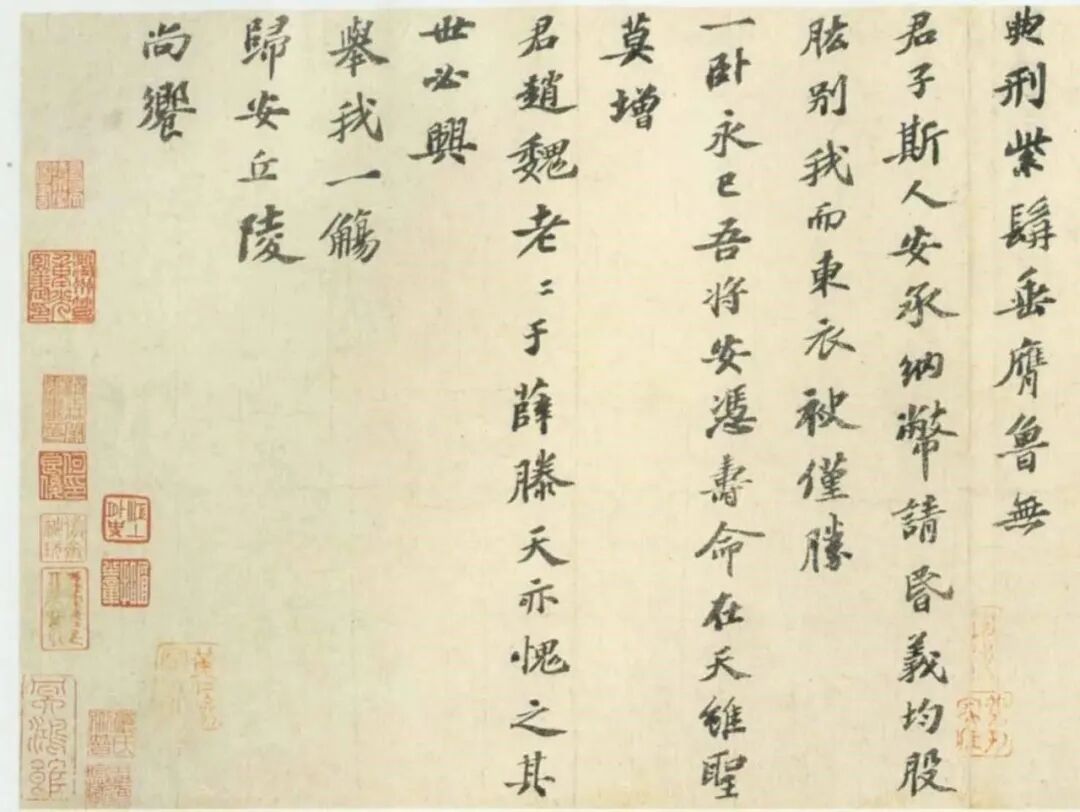 典刑紫髯垂膺魯無
君子斯人安承納幣請昏義均股
肱别我而東衣袂僅勝
一卧永已吾将安憑壽命在天雖聖
莫增
君趙魏老二于薛滕天亦愧之其
世必興
舉我一觴
歸安丘陵
尚饗